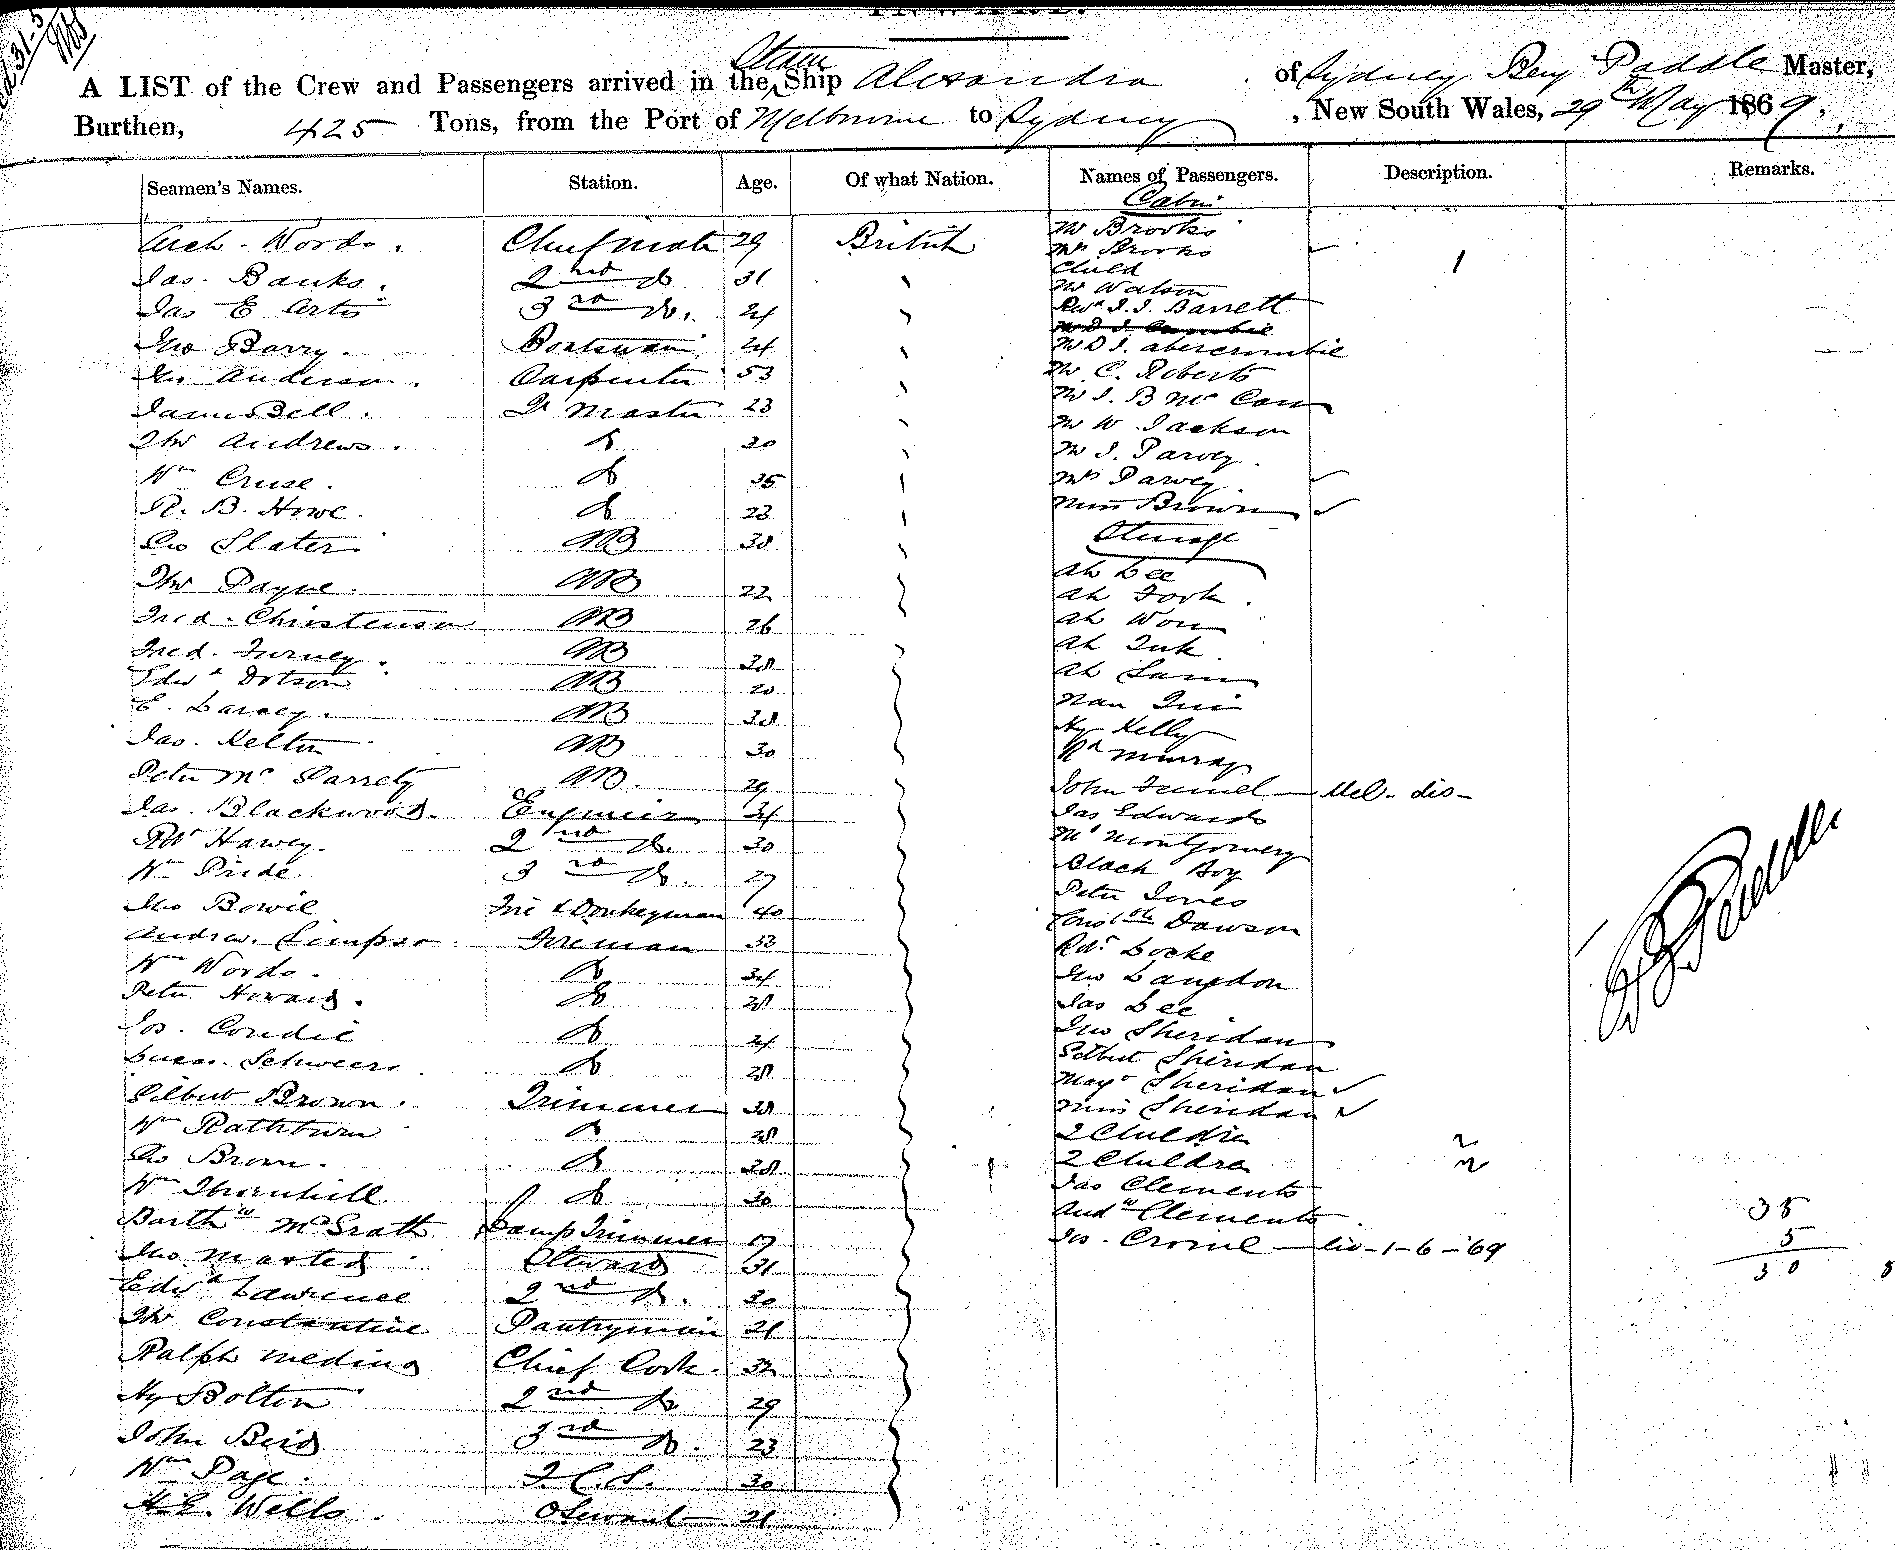 A LIST of the Crew and Passengers arrived in the Steam Ship Alexandra of Sydney Benj Paddle Master,
Burthen, 425 Tons, from the Port of Melbourne to Sydney, New South Wales, 29th May 1869.
Seamen's Names. Station. Age. Of what Nation. Names of Passengers. Description. Remarks.
Cabin
Arch. Words. Chief mate 29 British
Jas. Banks. 2nd do 31
Jas E Arts 3rd do. 24
Jno Barry. Boatswain 24
Jno Anderson. Carpenter 53
James Bell. Qr Master 23
Thos Andrews. do 20
Wm Cruse. do 35
R. B. Howe. do 23
Geo Slater AB 38
Thos Payne. AB 22
Fred. Christenson AB 26
Fred. Turney. AB 28
Edwd Dotson AB 20
E. Darcey. AB 28
Jas. Kelton AB 30
Peter Mc Garrety AB. 29
Jas. Blackwood. Engineer 34
Robt Harvey. 2nd do. 30
Wm Pride. 3rd do. 27
Jno Bowie Fire & Donkeyman 40
Andrew Simpson Fireman 33
Wm Words. do 34
Peter Howard. do 28
Jos. Condie do 24
Schweers do 28
Gilbert Brown. Trimmer 38
Wm Rathburn do 28
Geo Brown. do 28
Wm Thornhill do 20
Barthw McGrath Lamp Trimmer 17
Jno Marted Steward 31
Edwd Lawrence 2nd do. 30
Thos Constantine Pantryman 21
Ralph Medina Chief Cook. 32
Hy Bolton 2nd do 29
John Reid 3rd do. 23
Wm Page. F.C.S. 30
H.E. Wells. O Servant 21
Mr Brooks
Mrs Brooks
Child 1
Mr Watson
Revd J. J. Barrett
Mr D J. Abercrombie
Mr C. Roberts
Mr J. B Mc
Mr W Jackson
Mr J. Parvey.
Mrs Parvey.
Miss Brown
Steerage
Ah Lee
Ah Fook.
Ah Won
Ah Tuk.
Ah Sam
Nan
Hy Kelly
Rd Murray
John Fennel Mel. dis-
Jas Edwards
Mr Montgomery
Black Boy
Peter Jones
Dawson
Robt Locke
Jno Langdon
Jas Lee
Jno Sheridan
Gilbert Sheridan
Margt Sheridan
Miss Sheridan
2 Children 2
2 Children 2
Jas Clements
Andw Clements
Jos. 1-6-'69
35
5
30
B Paddle